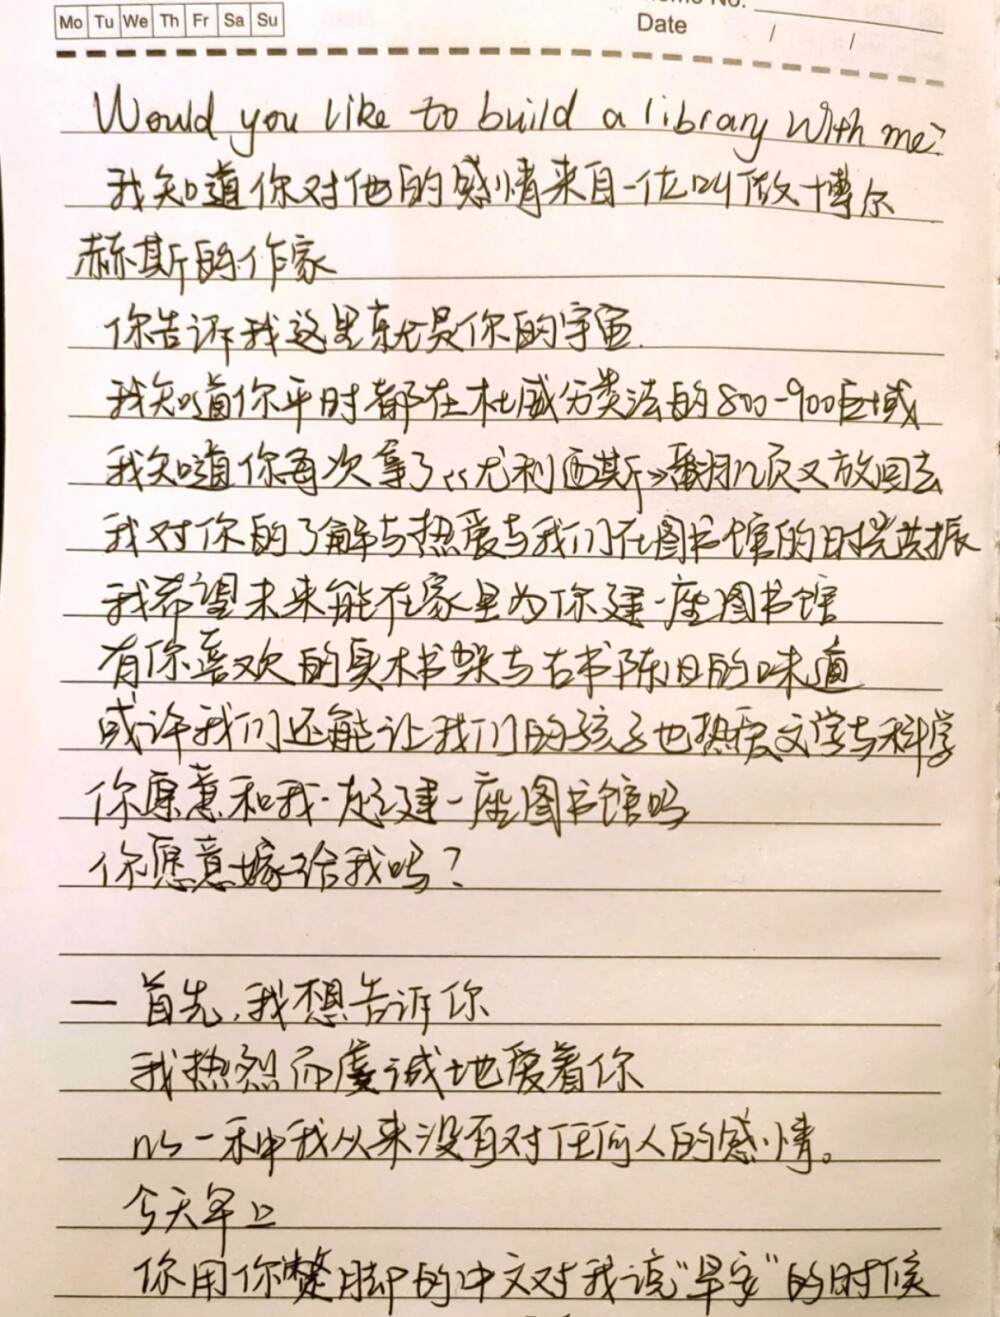 Mo Tu We Th Fr Sa Su
Date / /
Would you like to build a library with me?
我知道你对他的感情来自一位叫做博尔
赫斯的作家
你告诉我这里就是你的宇宙.
我知道你平时都在杜威分类法的800-900区域
我知道你每次拿了《尤利西斯》翻几页又放回去
我对你的了解与热爱与我们在图书馆的时光共振
我希望未来能在家里为你建一座图书馆
有你喜欢的实木书架与古书陈旧的味道
或许我们还能让我们的孩子也热爱文学与科学
你愿意和我一起建一座图书馆吗
你愿意嫁给我吗?
— 首先,我想告诉你
我热烈而虔诚地爱着你
以一种我从来没有对任何人的感情。
今天早上
你用你蹩脚的中文对我说“早安”的时候